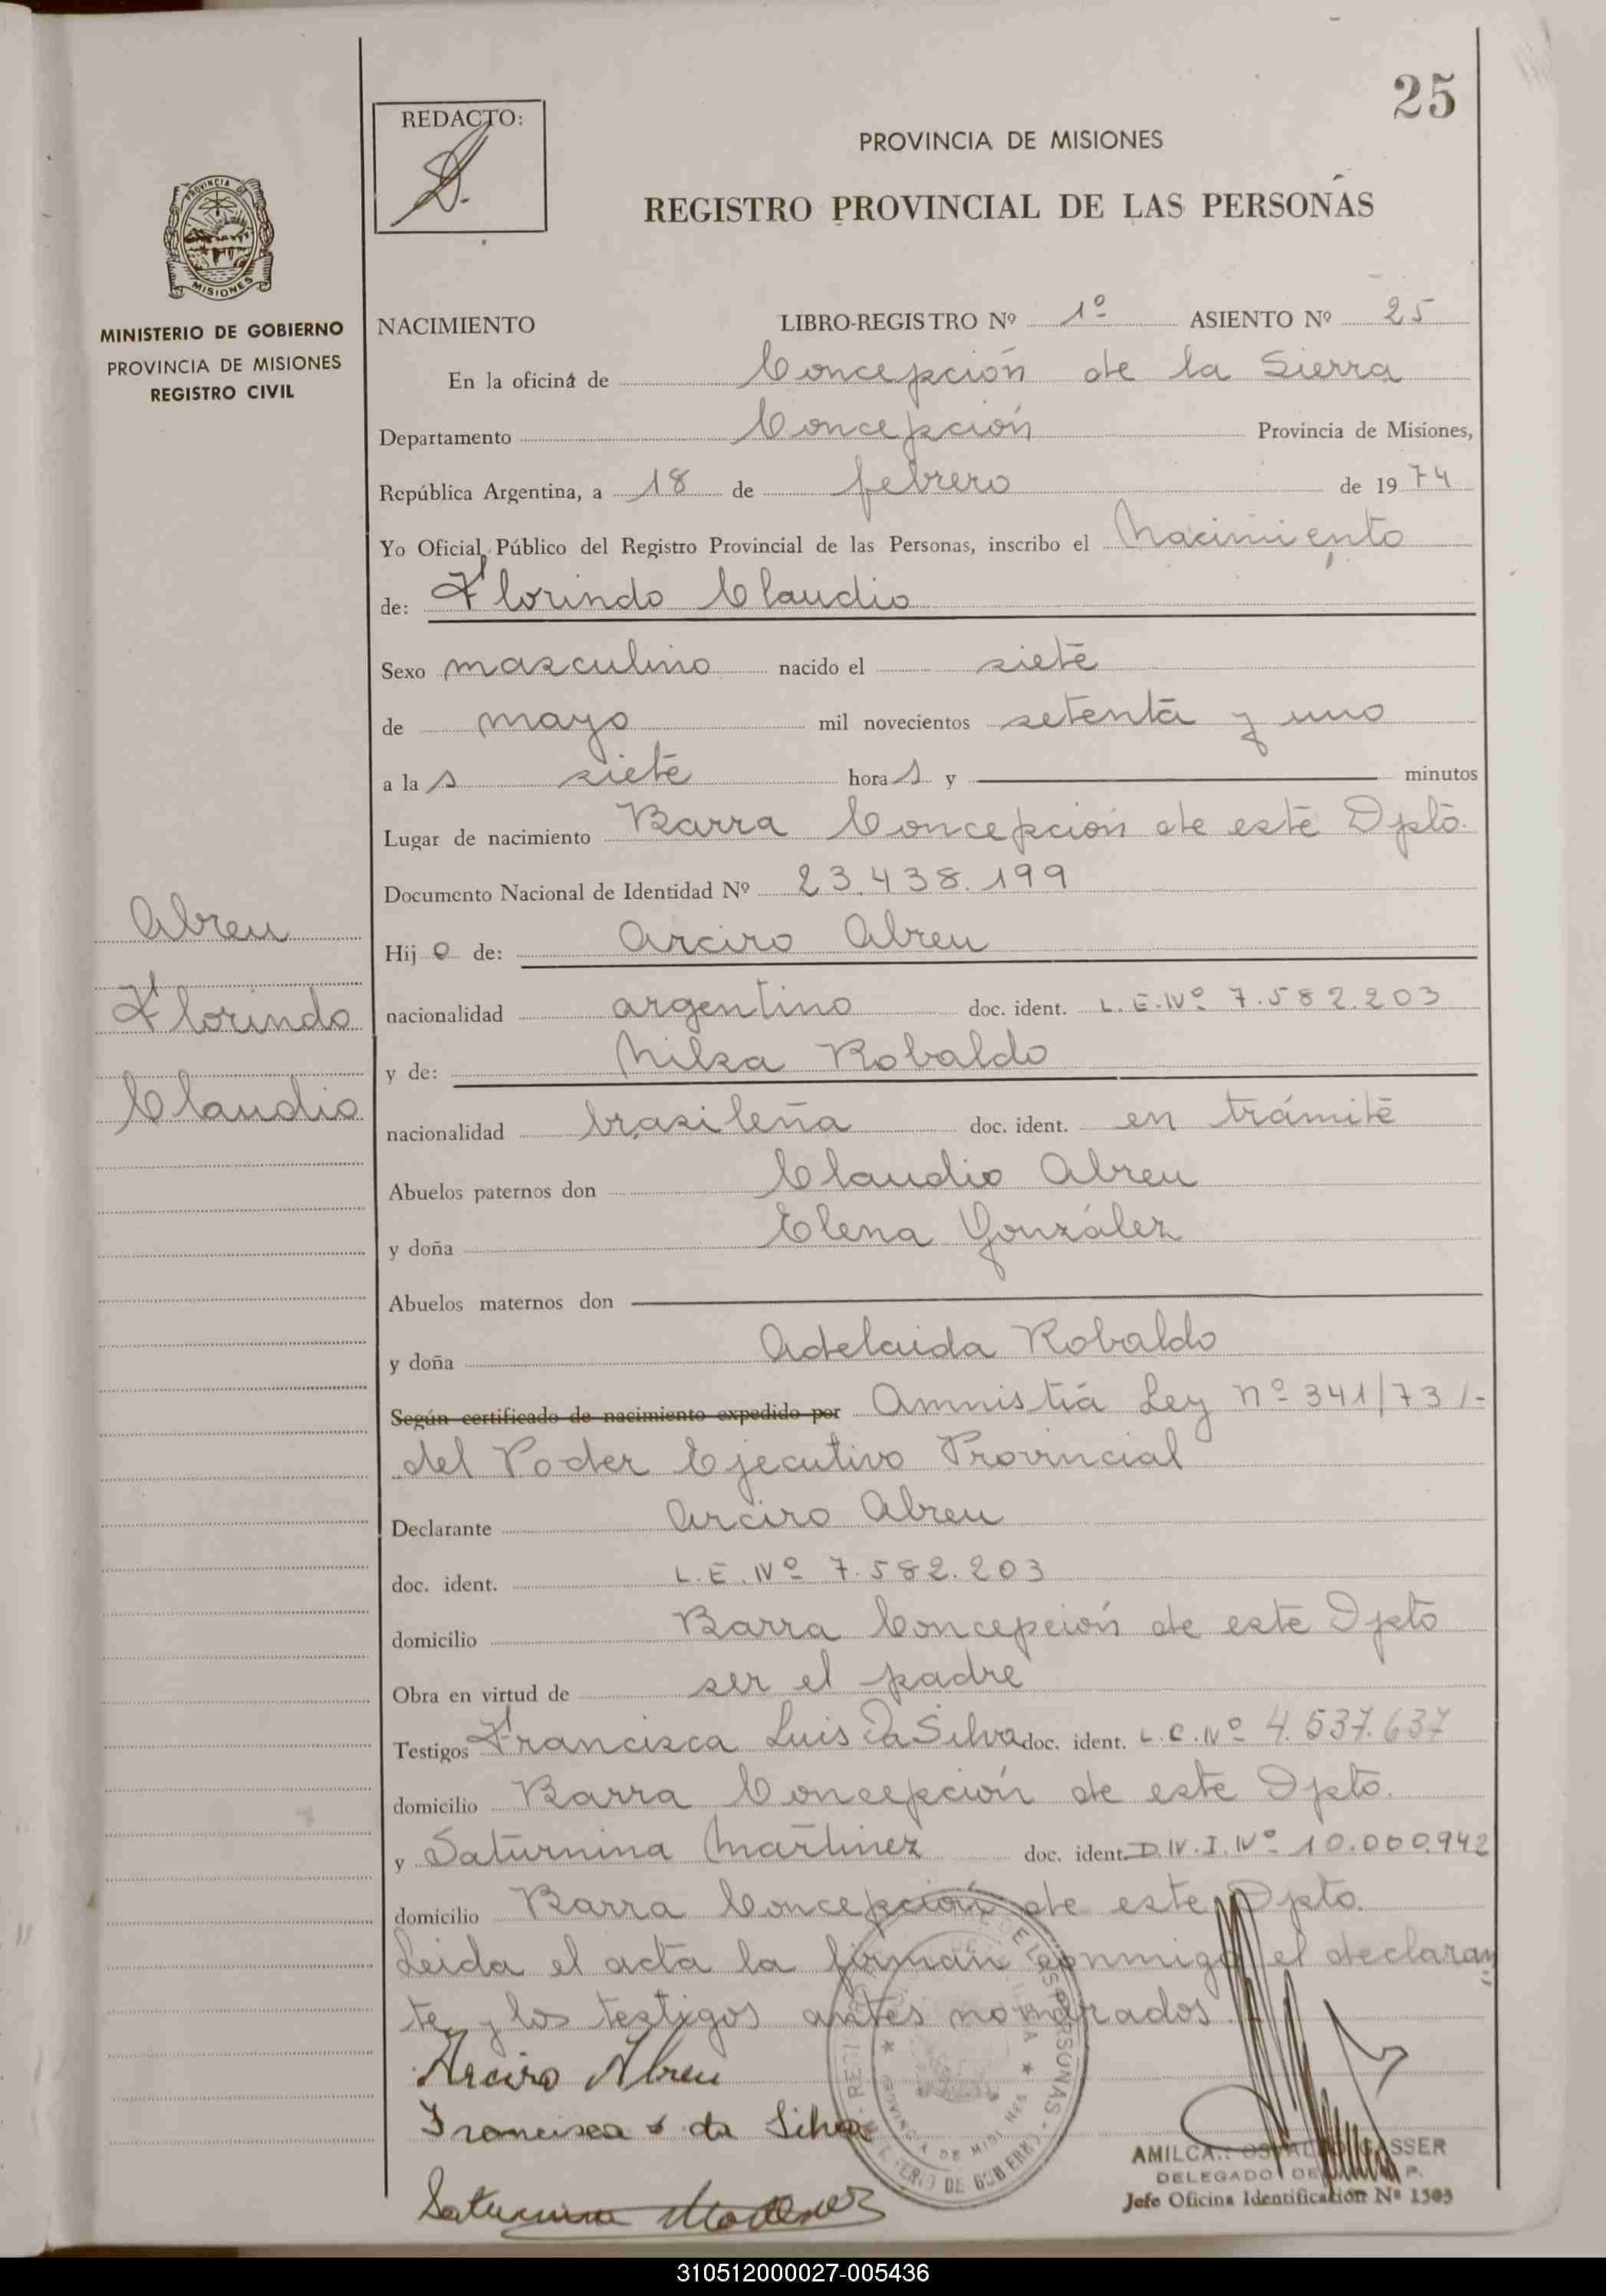 25
REDACTO:
PROVINCIA DE MISIONES
REGISTRO PROVINCIAL DE LAS PERSONAS
PROVINCIA DE
MISIONES
MINISTERIO DE GOBIERNO
PROVINCIA DE MISIONES
REGISTRO CIVIL
NACIMIENTO LIBRO-REGISTRO Nº 1º ASIENTO Nº 25
En la oficina de Concepción de la Sierra
Departamento Concepción Provincia de Misiones,
República Argentina, a 18 de febrero de 1974
Yo Oficial Público del Registro Provincial de las Personas, inscribo el Nacimiento
de: Florindo Claudio
Sexo masculino nacido el siete
de mayo mil novecientos setenta y uno
a las siete horas y minutos
Lugar de nacimiento Barra Concepción de este Dpto.
Documento Nacional de Identidad Nº 23.438.199
Abreu
Florindo
Claudio
Hijo de: Arciro Abreu
nacionalidad argentino doc. ident. L.E.Nº 7.582.203
y de: Nilza Robaldo
nacionalidad brasileña doc. ident. en trámite
Abuelos paternos don Claudio Abreu
y doña Elena González
Abuelos maternos don
y doña Adelaida Robaldo
Según certificado de nacimiento expedido por Amnistia Ley nº 341/73/-
del Poder Ejecutivo Provincial
Declarante Arciro Abreu
doc. ident. L.E.Nº 7.582.203
domicilio Barra Concepción de este Dpto
Obra en virtud de ser el padre
Testigos Francisca Luis Da Silva doc. ident. L.C.Nº 4.537.637
domicilio Barra Concepción de este Dpto.
y Saturnina Martinez doc. ident. D.N.I.Nº 10.000.942
domicilio Barra Concepción de este Dpto.
Leida el acta la firman conmigo el declaran
te y los testigos antes nombrados.
Arciro Abreu
Francisca da Silva
Saturnina
DELEGADO
Jefe Oficina Identificación Nº 1303
310512000027-005436